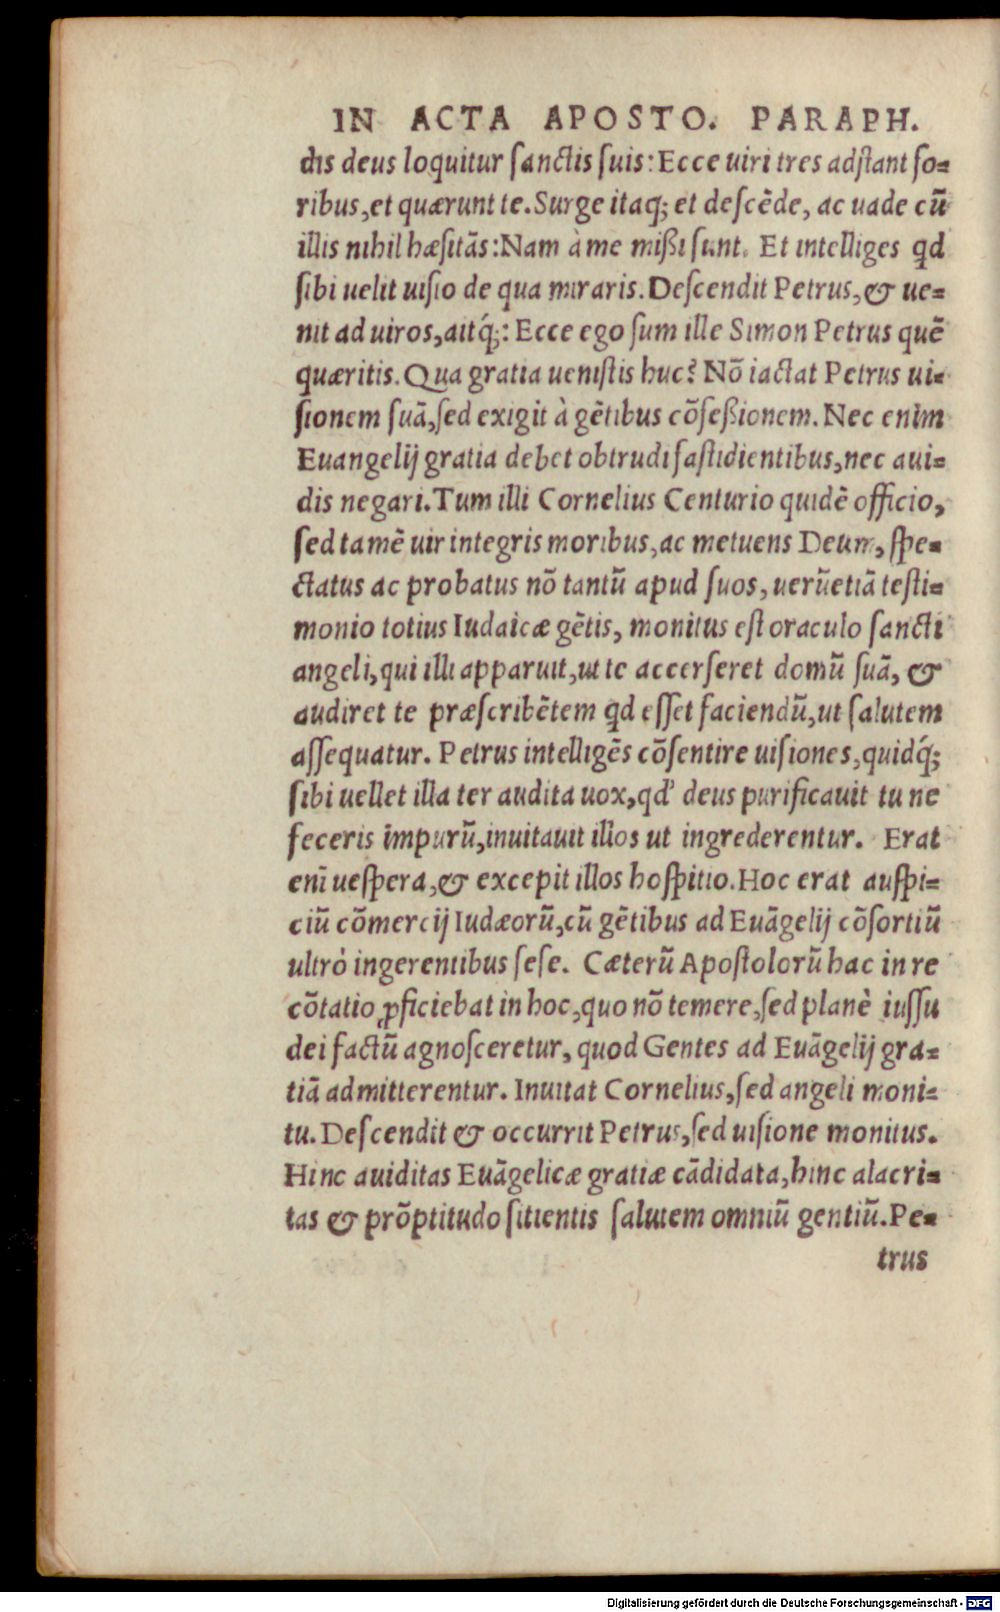 IN ACTA APOSTO. PARAPH.
dis deus loquitur sanctis suis: Ecce uiri tres adstant fo-
ribus, et quærunt te. Surge itaq; et descēde, ac uade cū
illis nihil hæsitās: Nam à me mißi sunt. Et intelliges qd
sibi uelit uisio de qua miraris. Descendit Petrus, & ue-
nit ad uiros, aitq́;: Ecce ego sum ille Simon Petrus quē
quæritis. Qua gratia uenistis huc? Nō iactat Petrus ui-
sionem suā, sed exigit à gētibus cōfeßionem. Nec enim
Euangelij gratia debet obtrudi fastidientibus, nec aui-
dis negari. Tum illi Cornelius Centurio quidē officio,
sed tamē uir integris moribus, ac metuens Deum, spe-
ctatus ac probatus nō tantū apud suos, uerūetiā testi-
monio totius Iudaicæ gētis, monitus est oraculo sancti
angeli, qui illi apparuit, ut te accerseret domū suā, &
audiret te præscribētem qd esset faciendū, ut salutem
assequatur. Petrus intelligēs cōsentire uisiones, quidq́;
sibi uellet illa ter audita uox, qd' deus purificauit tu ne
feceris impurū, inuitauit illos ut ingrederentur. Erat
enī uespera, & excepit illos hospitio. Hoc erat auspi-
ciū cōmercij Iudæorū, cū gētibus ad Euāgelij cōsortiū
ultrò ingerentibus sese. Cæterū Apostolorū hac in re
cōtatio ꝓficiebat in hoc, quo nō temere, sed planè iussu
dei factū agnosceretur, quod Gentes ad Euāgelij gra-
tiā admitterentur. Inuitat Cornelius, sed angeli moni-
tu. Descendit & occurrit Petrus, sed uisione monitus.
Hinc auiditas Euāgelicæ gratiæ cādidata, hinc alacri-
tas & prōptitudo sitientis salutem omniū gentiū. Pe-
trus
Digitalisierung gefördert durch die Deutsche Forschungsgemeinschaft - DFG